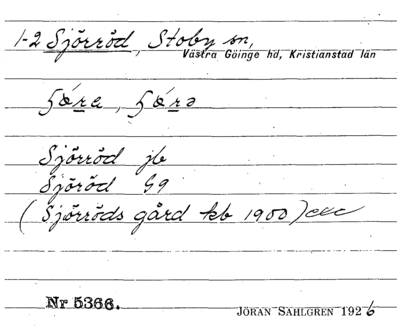 1-2 Sjörröd, Stoby sn,
Västra Göinge hd, Kristianstad län
Sjörröd jb
Sjöröd G9
(Sjörröds gård kb 1900)
Nr 5366.
JÖRAN SAHLGREN 1926